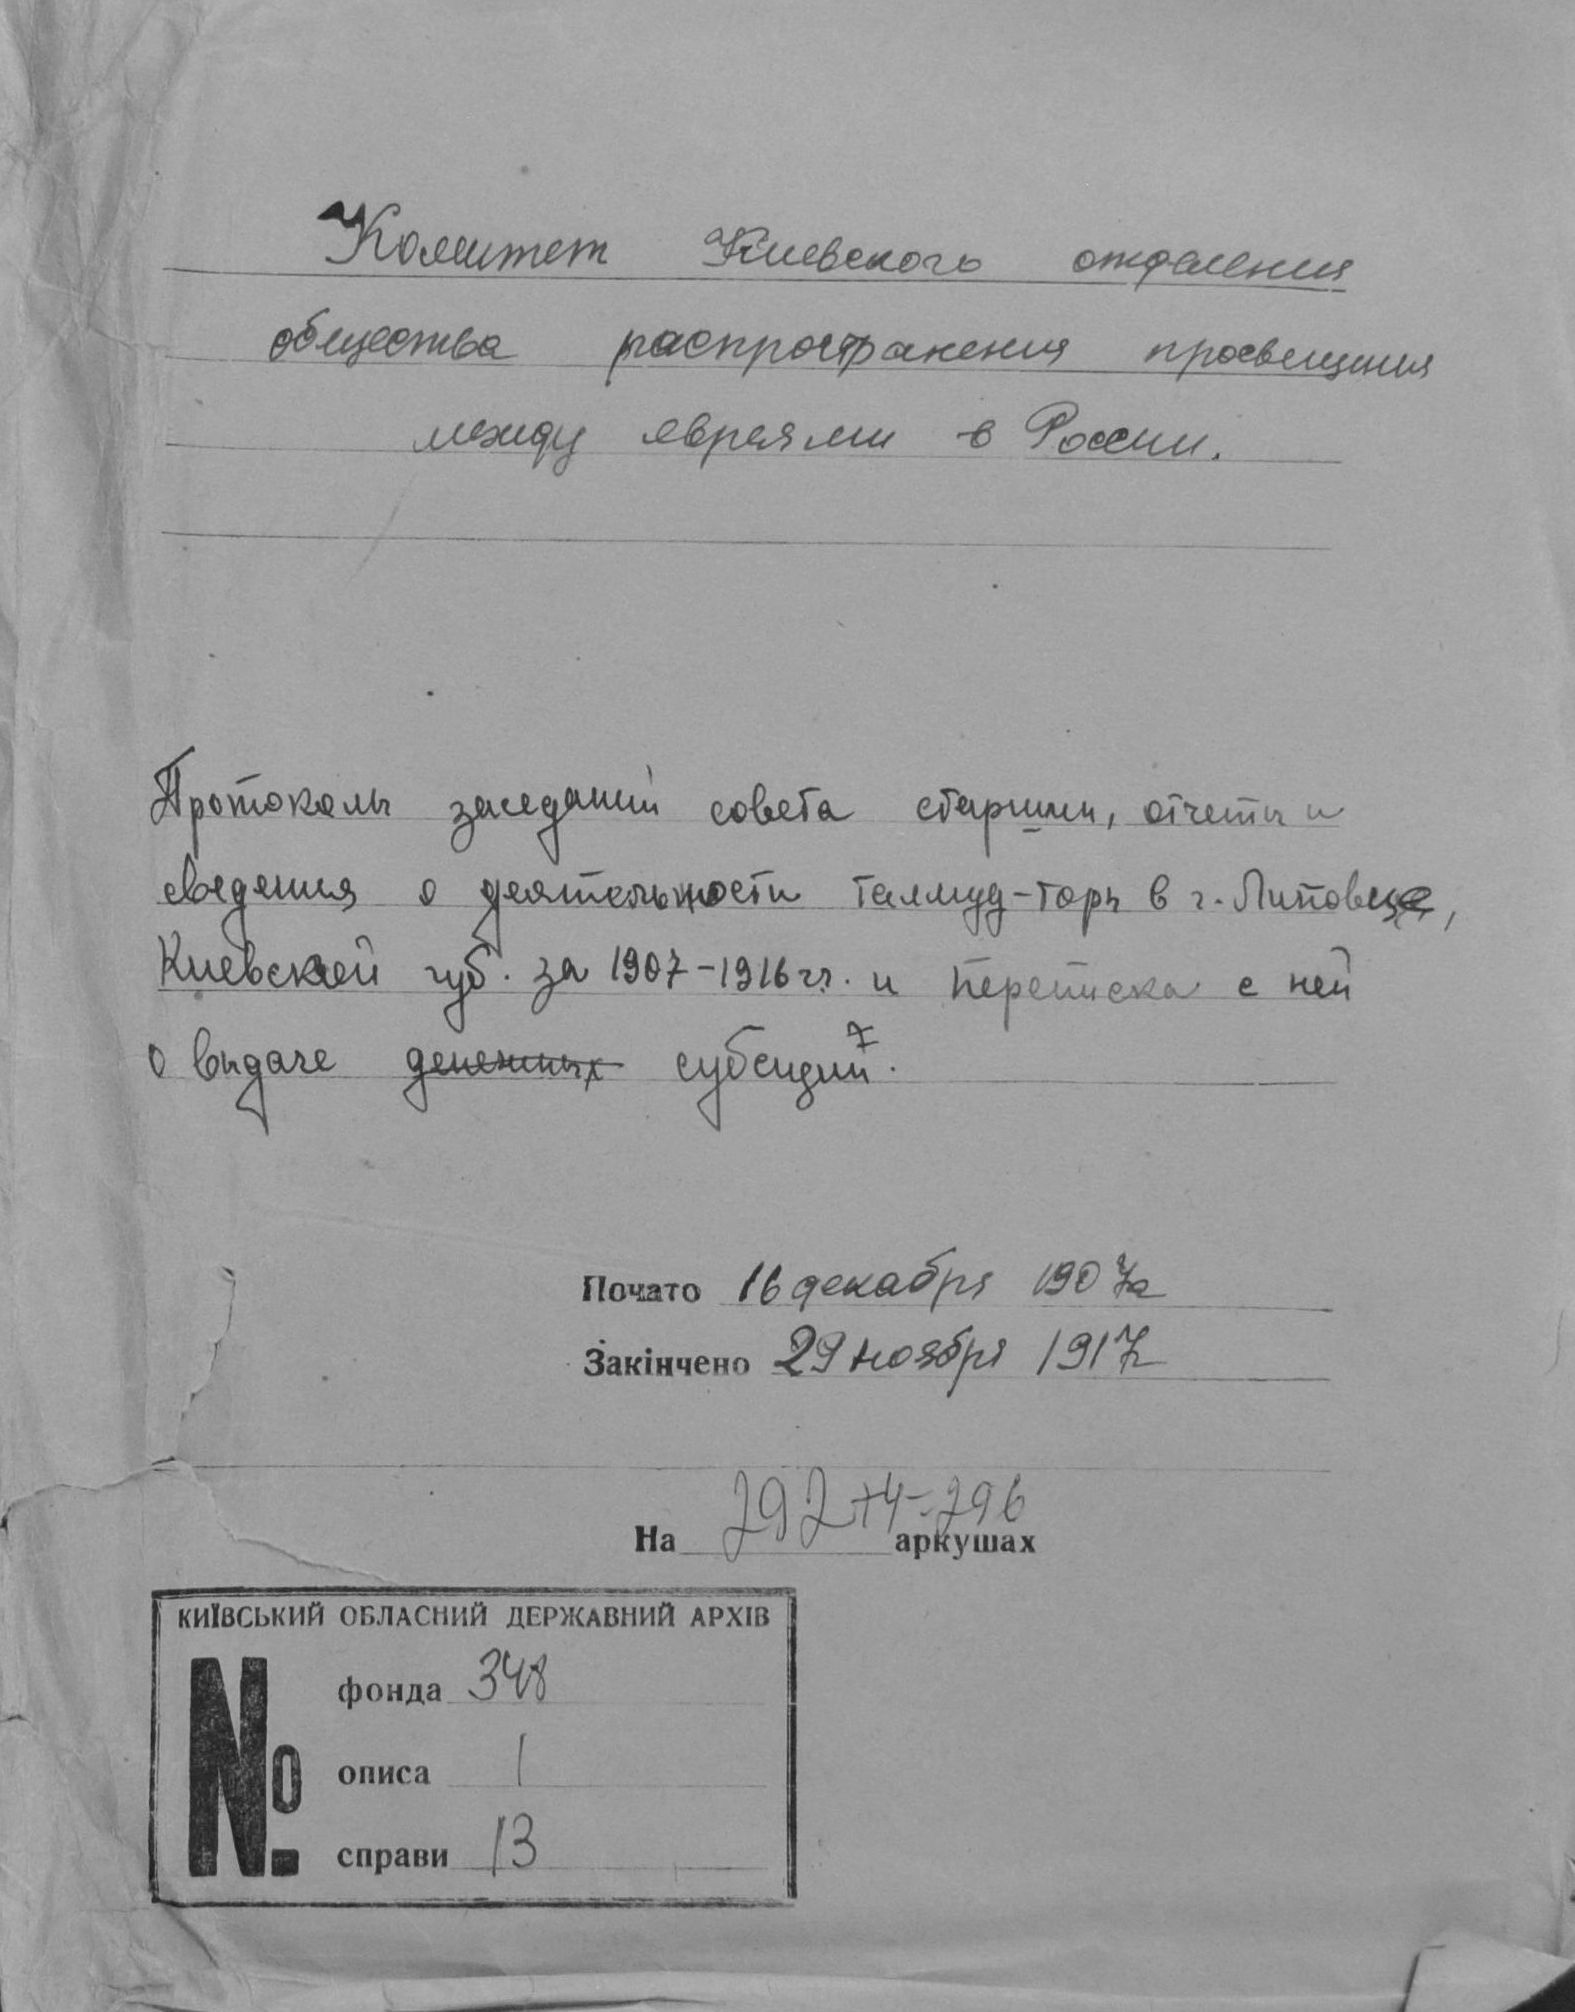 Комитет Киевского отделения
общества распространения просвещения
между евреями в России.
Протоколы заседаний совета старшин, отчеты и
сведения о деятельности талмуд-торы в г. Липовце,
Киевской губ. за 1907-1916 гг. и переписка с ней
о выдаче денежных субсидий.
Почато 16 декабря 1907 г
Закінчено 29 ноября 1917
На 292+4=296 аркушах
КИЇВСЬКИЙ ОБЛАСНИЙ ДЕРЖАВНИЙ АРХІВ
№
фонда 348
описа 1
справи 13